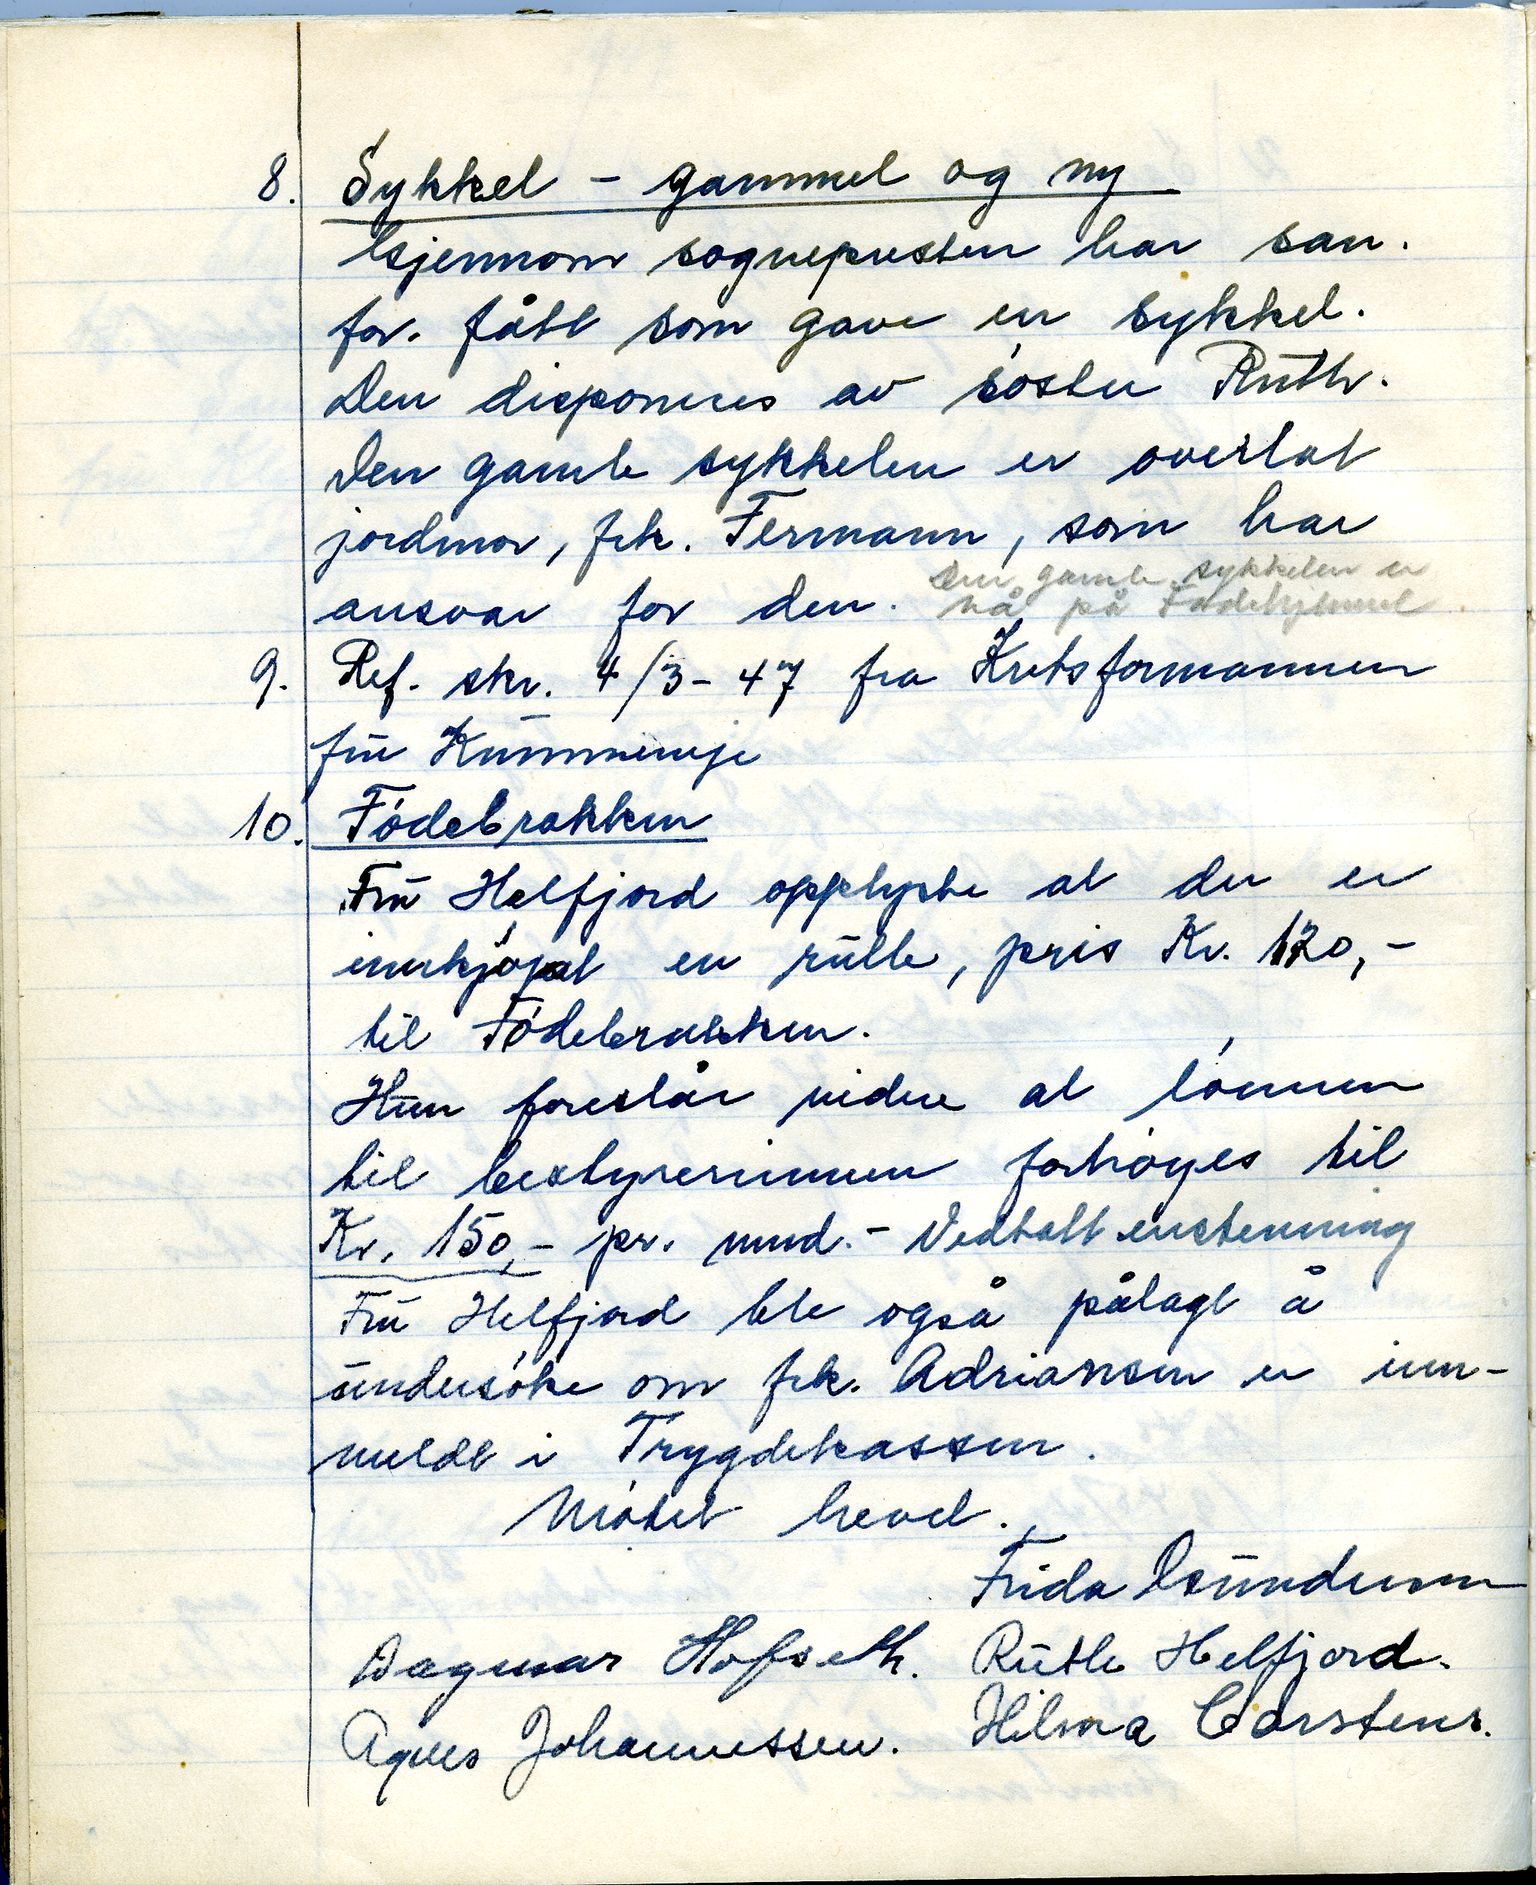 8. Sykkel – gammel og ny
Gjennom sognepresten har san.
for. fått som gave en sykkel.
Den disponeres av söster Ruth.
Den gamle sykkelen er overlat
jordmor, frk. Fermann, som har
ansvar for den. Den gamle sykkelen er
nå på Födehjemmet.
9. Ref. skr. 4/3-47 fra Kretsformannen
fru Kummeneje
10. Födebrakken
Fru Helfjord opplyste at der er
innkjöpt en rulle, pris Kr. 120,-
til Födebrakken.
Hun foreslår videre at lönnen
til bestyrerinnen forhöyes til
Kr. 150,- pr. mnd. – Vedtatt enstemmig
Fru Helfjord ble også pålagt å
undersöke om frk. Adriansen er inn-
meldt i Trygdekassen.
Mötet hevet.
Frida Gundersen
Dagmar Hofseth. Ruth Helfjord.
Agnes Johannessen. Hilma Carstens.